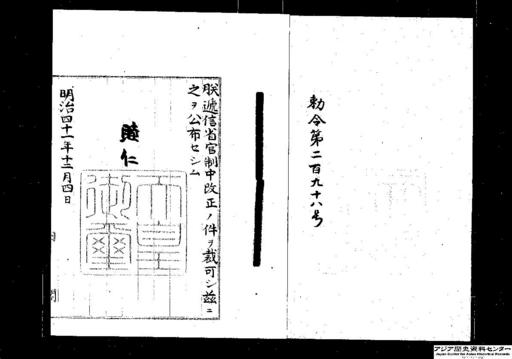 勅令第二百九十八号
朕逓信省官制中改正ノ件ヲ裁可シ茲ニ
之ヲ公布セシム
睦仁
天皇御璽
明治四十一年十二月四日
内 閣
アジア歴史資料センター
Japan Center for Asian Historical Records